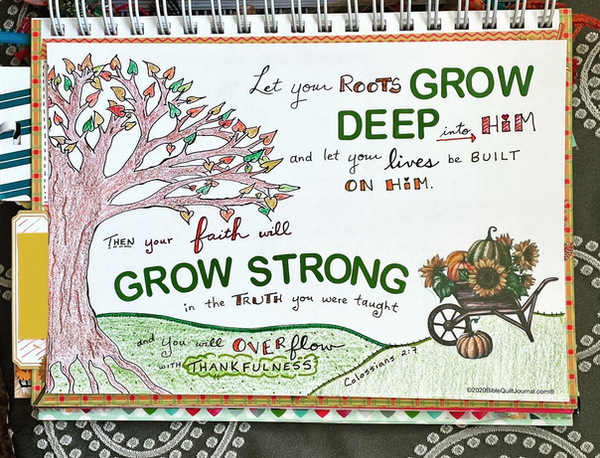 Let your ROOTS GROW
DEEP into HiM
and let your lives be BUILT
ON HiM.
THEN your faith will
GROW STRONG
in the TRUTH you were taught
and you will OVERflow
WITH THANKFULNESS
Colossians 2:7
©2020BibleQuiltJournal.com®